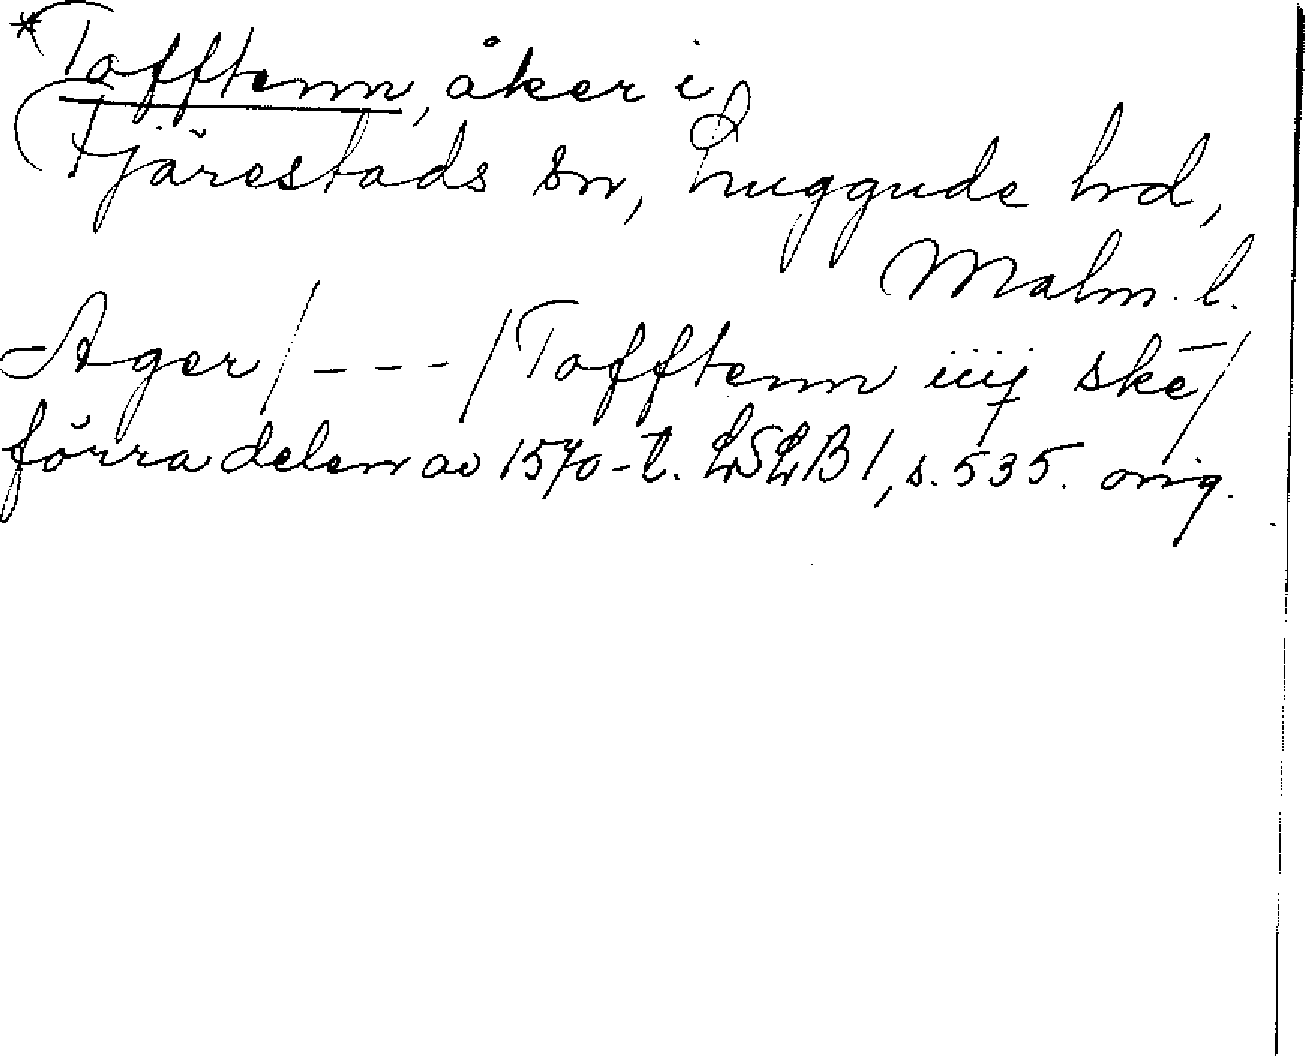 *Tofftenn, åker i
Tjärestads sn, Luggude hd,
Malm. l.
Ager / - - - / Tofftenn iiij skē /
förra delen av 1570-t. LSLB 1, s. 535. orig.